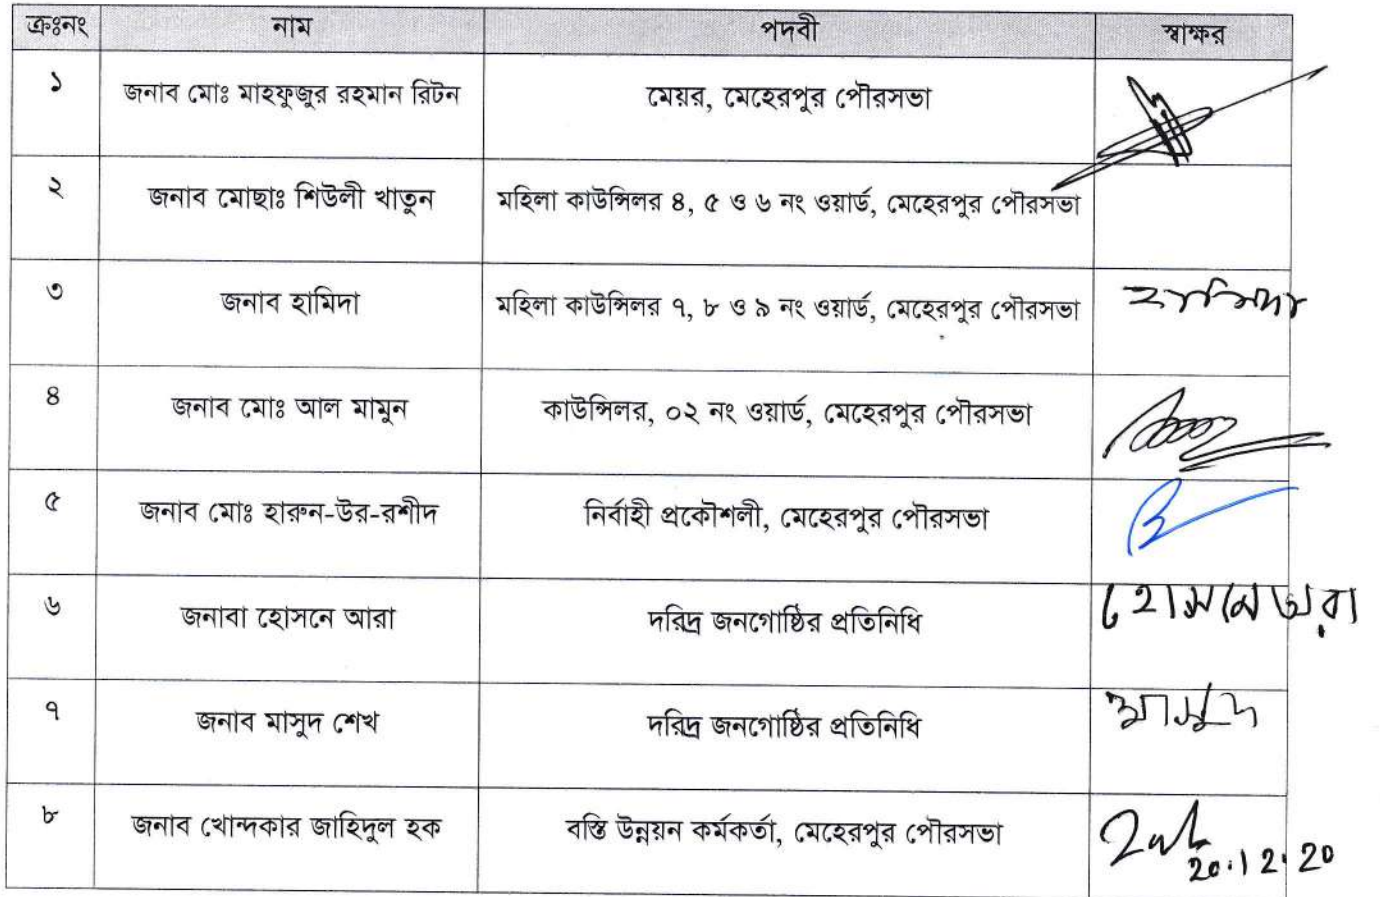 ক্রঃনং নাম পদবী স্বাক্ষর
১ জনাব মোঃ মাহফুজুর রহমান রিটন মেয়র, মেহেরপুর পৌরসভা
২ জনাব মোছাঃ শিউলী খাতুন মহিলা কাউন্সিলর ৪, ৫ ও ৬ নং ওয়ার্ড, মেহেরপুর পৌরসভা
৩ জনাব হামিদা মহিলা কাউন্সিলর ৭, ৮ ও ৯ নং ওয়ার্ড, মেহেরপুর পৌরসভা হামিদা
৪ জনাব মোঃ আল মামুন কাউন্সিলর, ০২ নং ওয়ার্ড, মেহেরপুর পৌরসভা
৫ জনাব মোঃ হারুন-উর-রশীদ নির্বাহী প্রকৌশলী, মেহেরপুর পৌরসভা
৬ জনাবা হোসনে আরা দরিদ্র জনগোষ্ঠির প্রতিনিধি হোসনেআরা
৭ জনাব মাসুদ শেখ দরিদ্র জনগোষ্ঠির প্রতিনিধি মাসুদ
৮ জনাব খোন্দকার জাহিদুল হক বস্তি উন্নয়ন কর্মকর্তা, মেহেরপুর পৌরসভা
20.12.20